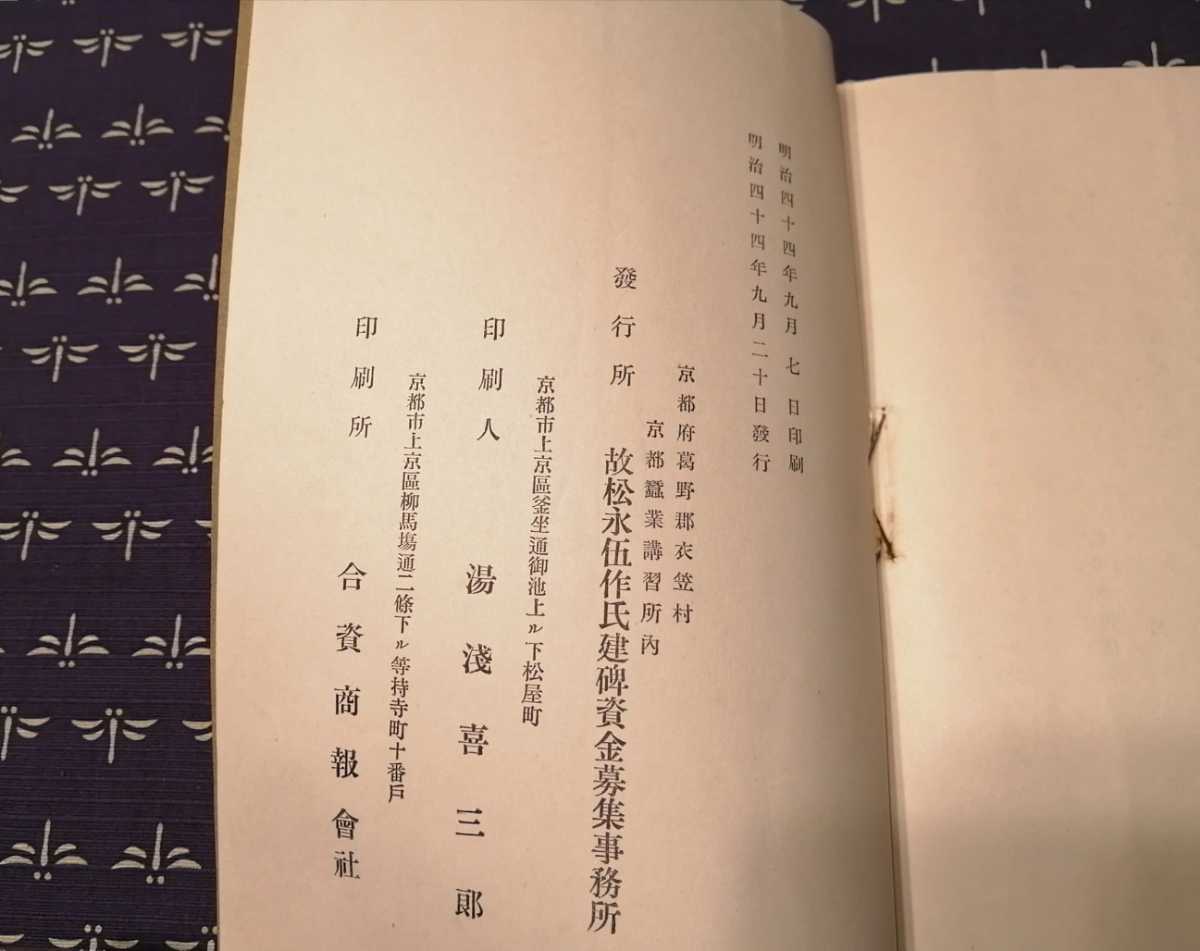 明治四十四年九月七日印刷
明治四十四年九月二十日發行
京都府葛野郡衣笠村
京都蠶業講習所內
發行所 故松永伍作氏建碑資金募集事務所
京都市上京區釜坐通御池上ル下松屋町
印刷人 湯淺喜三郎
京都市上京區柳馬塲通二條下ル等持寺町十番戶
印刷所 合資商報會社